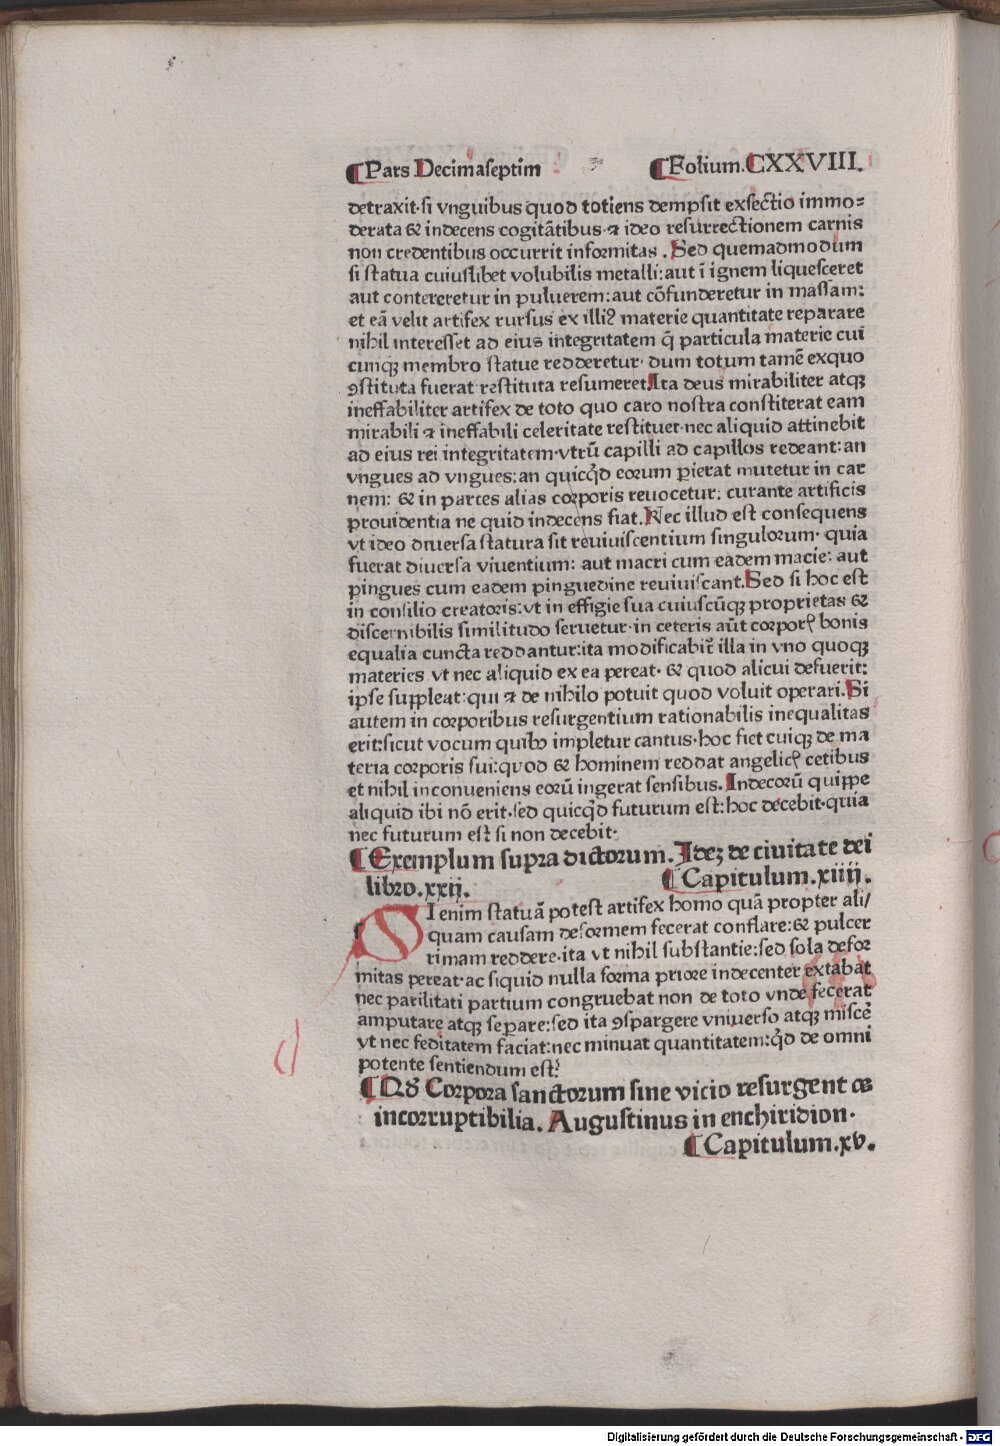 ¶Pars Decimaseptim ¶Folium.CXXVIII.
detraxit·si vnguibus quod totiens dempsit exsectio immo=
derata & indecens cogitātibus·⁊ ideo resurrectionem carnis
non credentibus occurrit informitas .Sed quemadmodum
si statua cuiuslibet volubilis metalli:aut ī ignem liquesceret
aut contereretur in puluerem:aut cōfunderetur in massam:
et eā velit artifex rursus ex illiꝰ materie quantitate reparare
nihil interesset ad eius integritatem q̄ particula materie cui
cunqꝫ membro statue redderetur· dum totum tamē exquo
ꝯstituta fuerat restituta resumeret.Ita deus mirabiliter atqꝫ
ineffabiliter artifex de toto quo caro nostra constiterat eam
mirabili ⁊ ineffabili celeritate restituer·nec aliquid attinebit
ad eius rei integritatem·vtrū capilli ad capillos redeant:an
vngues ad vngues:an quicq̇d eorum perierat mutetur in car
nem: & in partes alias corporis reuocetur: curante artificis
prouidentia ne quid indecens fiat.Nec illud est consequens
vt ideo diuersa statura sit reuiuiscentium singulorum· quia
fuerat diuersa viuentium: aut macri cum eadem macie: aut
pingues cum eadem pinguedine reuiuiscant.Sed si hoc est
in consilio creatoris:vt in effigie sua cuiuscūqꝫ proprietas &
discernibilis similitudo seruetur·in ceteris aūt corporꝭ bonis
equalia cuncta reddantur:ita modificabit̄ illa in vno quoqꝫ
materies vt nec aliquid ex ea pereat· & quod alicui defuerit:
ipse suppleat:qui ⁊ de nihilo potuit quod voluit operari.Si
autem in corporibus resurgentium rationabilis inequalitas
erit:sicut vocum quibꝰ impletur cantus·hoc fiet cuiqꝫ de ma
teria corporis sui:quod & hominem reddat angelicꝭ cetibus
et nihil inconueniens eorū ingerat sensibus. Indecorū quippe
aliquid ibi nō erit·sed quicq̇d futurum est:hoc decebit·quia
nec futurum est si non decebit·
¶Exemplum supra dictorum. Ideꝫ de ciuitate dei
libro.xxij. ¶Capitulum.xiiij.
SI enim statuā potest artifex homo quā propter ali/
quam causam deformem fecerat conflare:& pulcer
rimam reddere·ita vt nihil substantie:sed sola defor
mitas pereat·ac siquid nulla forma priore indecenter extabat
nec parilitati partium congruebat non de toto vnde fecerat
amputare atqꝫ seꝑare:sed ita ꝯspargere vniuerso atqꝫ miscē
vt nec feditatem faciat:nec minuat quantitatem:q̇d de omni
potente sentiendum est?
¶Qd Corpora sanctorum sine vicio resurgent &
incorruptibilia. Augustinus in enchiridion·
¶Capitulum.xv.
Digitalisierung gefördert durch die Deutsche Forschungsgemeinschaft - DFG